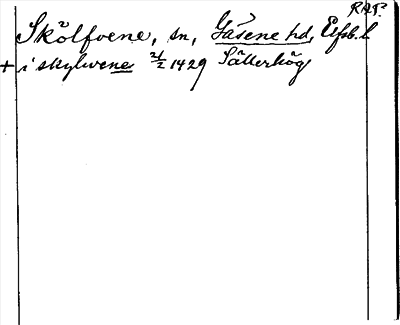 RAP.
Skölfvene, sn, Gäsene hd, Elfsb. l
+ i skylwene 2/2 1429 Sätterhög